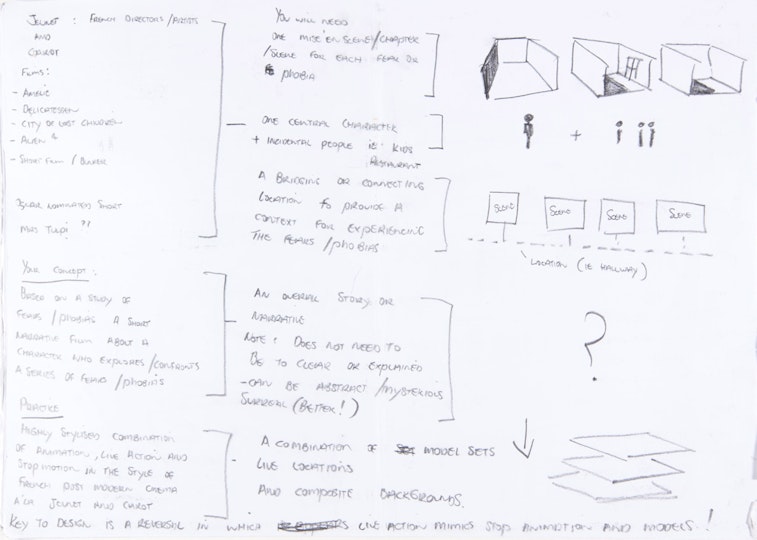 JEUNET : FRENCH DIRECTORS/ARTISTS
AND
CAROT
FILMS:
- AMELIE
- DELICATESSEN
- CITY OF LOST CHILDREN
- ALIEN 4
- SHORT FILM / BUNKER
OSCAR NOMINATED SHORT
MRS TULPI ??
YOUR CONCEPT :
BASED ON A STUDY OF
FEARS/PHOBIAS A SHORT
NARRATIVE FILM ABOUT A
CHARACTER WHO EXPLORES/CONFRONTS
A SERIES OF FEARS/PHOBIAS
PRACTICE
HIGHLY STYLISED COMBINATION
OF ANIMATION, LIVE ACTION AND
STOP MOTION IN THE STYLE OF
FRENCH POST MODERN CINEMA
A'LA JEUNET AND CAROT
YOU WILL NEED
ONE MISE EN SCENE/CHARACTER
/SCENE FOR EACH FEAR OR
PHOBIA
ONE CENTRAL CHARACTER
+ INCIDENTAL PEOPLE IE: KIDS
RESTAURANT
A BRIDGING OR CONNECTING
LOCATION TO PROVIDE A
CONTEXT FOR EXPERIENCING
THE FEARS/PHOBIAS
AN OVERALL STORY OR
NARRATIVE
NOTE : DOES NOT NEED TO
BE TO CLEAR OR EXPLAINED
- CAN BE ABSTRACT/MYSTERIOUS
SURREAL (BETTER!)
- A COMBINATION OF MODEL SETS
LIVE LOCATIONS
AND COMPOSITE BACKGROUNDS.
+
SCENE SCENE SCENE SCENE
LOCATION (IE HALLWAY)
?
KEY TO DESIGN IS A REVERSAL IN WHICH LIVE ACTION MIMICS STOP ANIMATION AND MODELS !